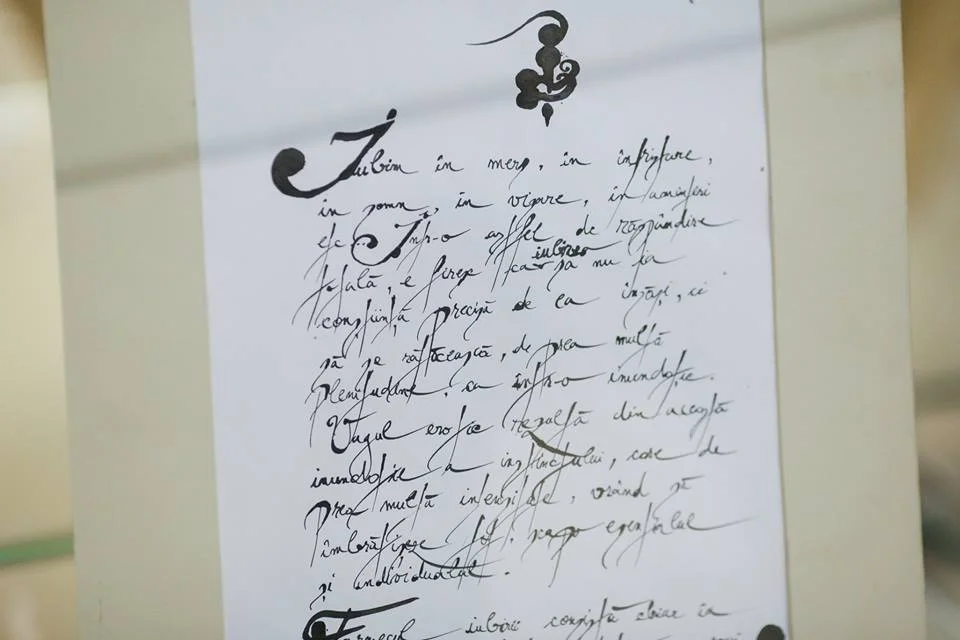 Iubim în mers, în întristare,
în somn, în vipire, în amintiri
etc. Într-o astfel de răspândire
totală, e firesc ca iubirea să nu ia
conștiință precisă de ea însăși, ci
să se rătăcească, de prea multă
plenitudine, ca într-o inundație.
Vagul erotic rezultă din această
inundație a instinctului, care de
prea multă intensitate, vrând să
îmbrățișeze tot, scapă esențialul
și individualul.
Farmecul iubirii constă chiar în